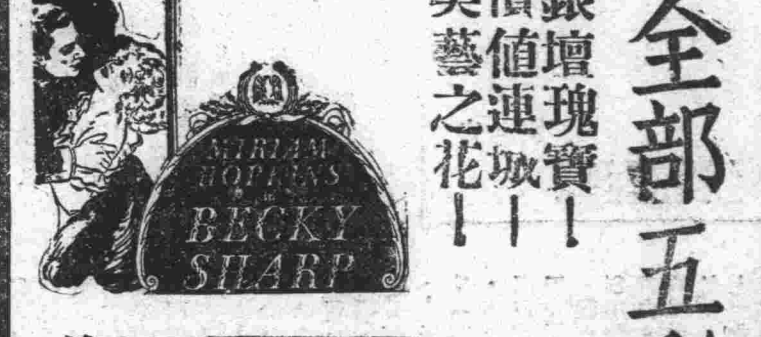 全部五
銀壇瑰寶！
值連城！
藝之花！
MIRIAM
HOPKINS
in
BECKY
SHARP